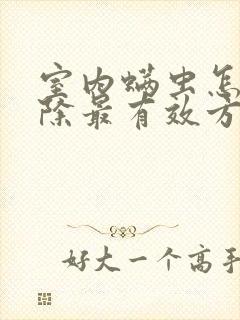 室内螨虫怎
除最有效方
好大一个高手